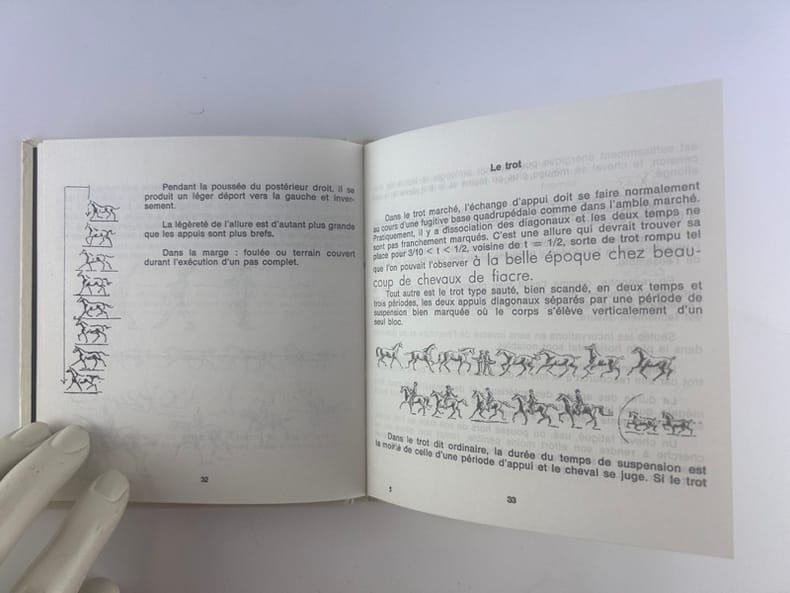 Pendant la poussée du postérieur droit, il se
produit un léger déport vers la gauche et inver-
sement.
La légèreté de l'allure est d'autant plus grande
que les appuis sont plus brefs.
Dans la marge : foulée ou terrain couvert
durant l'exécution d'un pas complet.
32
Le trot
Dans le trot marché, l'échange d'appui doit se faire normalement
au cours d'une fugitive base quadrupédale comme dans l'amble marché.
Pratiquement, il y a dissociation des diagonaux et les deux temps ne
sont pas franchement marqués. C'est une allure qui devrait trouver sa
place pour 3/10 < t < 1/2, voisine de t = 1/2, sorte de trot rompu tel
que l'on pouvait l'observer à la belle époque chez beau-
coup de chevaux de fiacre.
Tout autre est le trot type sauté, bien scandé, en deux temps et
trois périodes, les deux appuis diagonaux séparés par une période de
suspension bien marquée où le corps s'élève verticalement d'un
seul bloc.
Dans le trot dit ordinaire, la durée du temps de suspension est
la moitié de celle d'une période d'appui et le cheval se juge. Si le trot
5
33